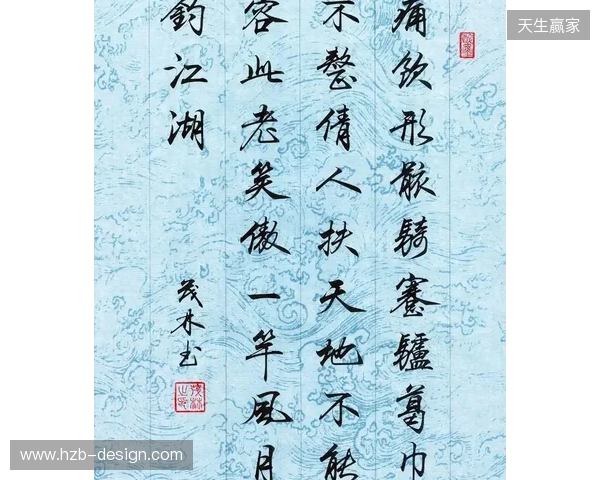 痛飲形骸騎蹇驢葛巾
不整倩人扶天地不能
容此老笑傲一竿風月
釣江湖
茂林书
天生赢家
www.hzb-design.com